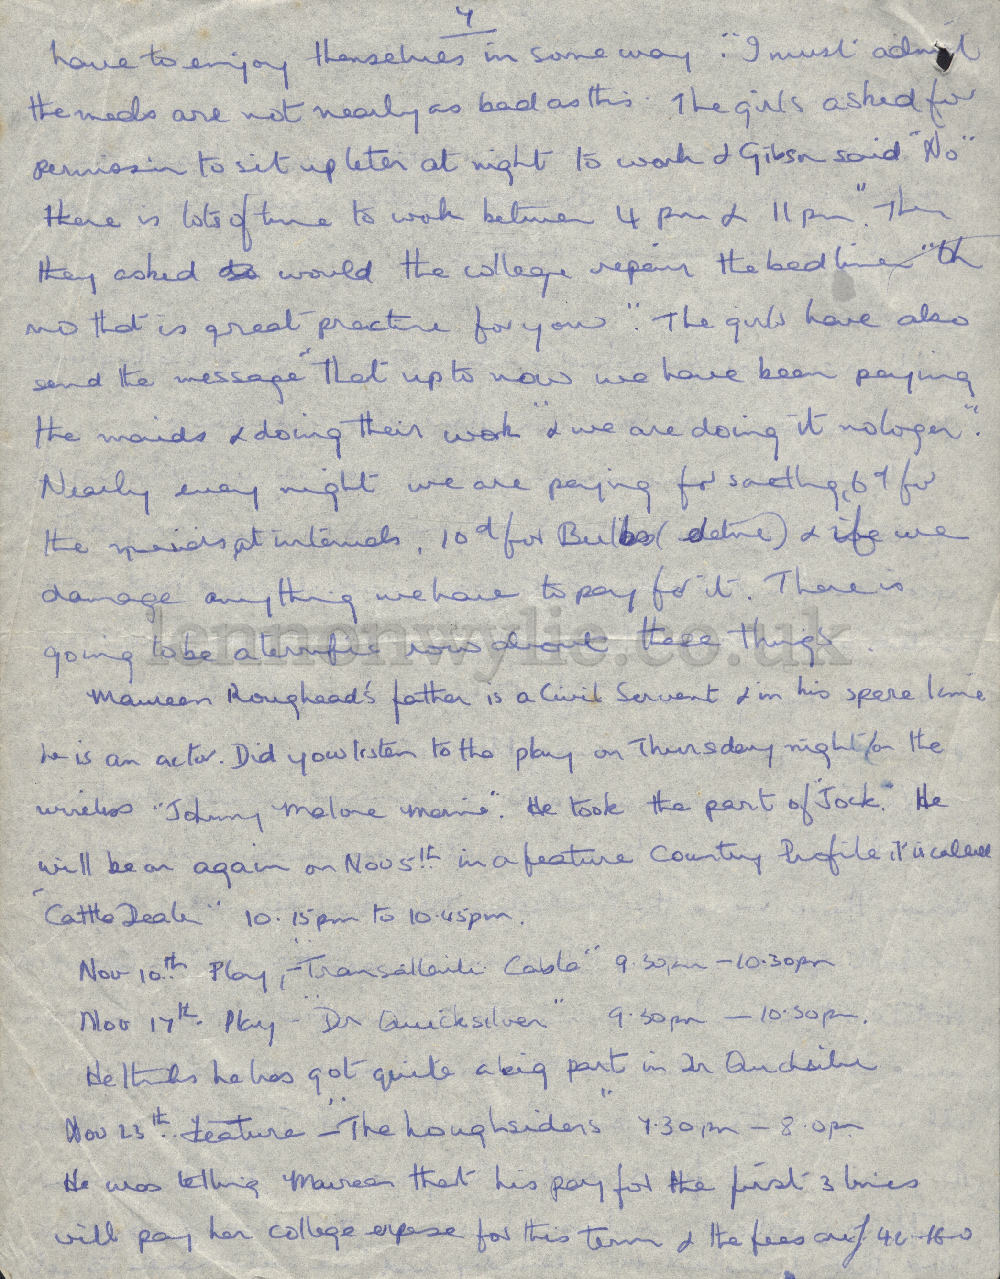 4
have to enjoy themselves in some way". I must admit
the meds are not nearly as bad as this. The girls asked for
permission to sit up later at night to work & Gibson said "No"
there is lots of time to work between 4 pm & 11 pm". Then
they asked would the college repair the bed linen "Oh
no that is great practice for you". The girls have also
send the message "that up to now we have been paying
the maids & doing their work" "& we are doing it no loger".
Nearly every night we are paying for something, 6d for
the maids at intervals, 10d for Bulbs ( ) & if we
damage anything we have to pay for it. There is
going to be a terrific row about these things.
lennonwylie.co.uk
Maureen Roughead's father is a Civil Servant & in his spare time
he is an actor. Did you listen to the play on Thursday night on the
wireless "Johnny Malone ". He took the part of "Jock." He
will be on again on Nov 5th in a feature Country Profile it is called
"Cattle Dealer" 10.15pm to 10.45pm.
Nov 10th Play, - "Transatlantic Cable" 9.30pm - 10.30pm
Nov 17th. Play - "Dr Quicksilver" 9.30pm - 10.30pm.
He thinks he has got quite a big part in Dr Quicksilver
Nov 23th. Feature - "The Loughsiders" 7.30pm - 8.0pm
He was telling Maureen that his pay for the first 3 lines
will pay her college expense for this term & the fees are £42-16-0